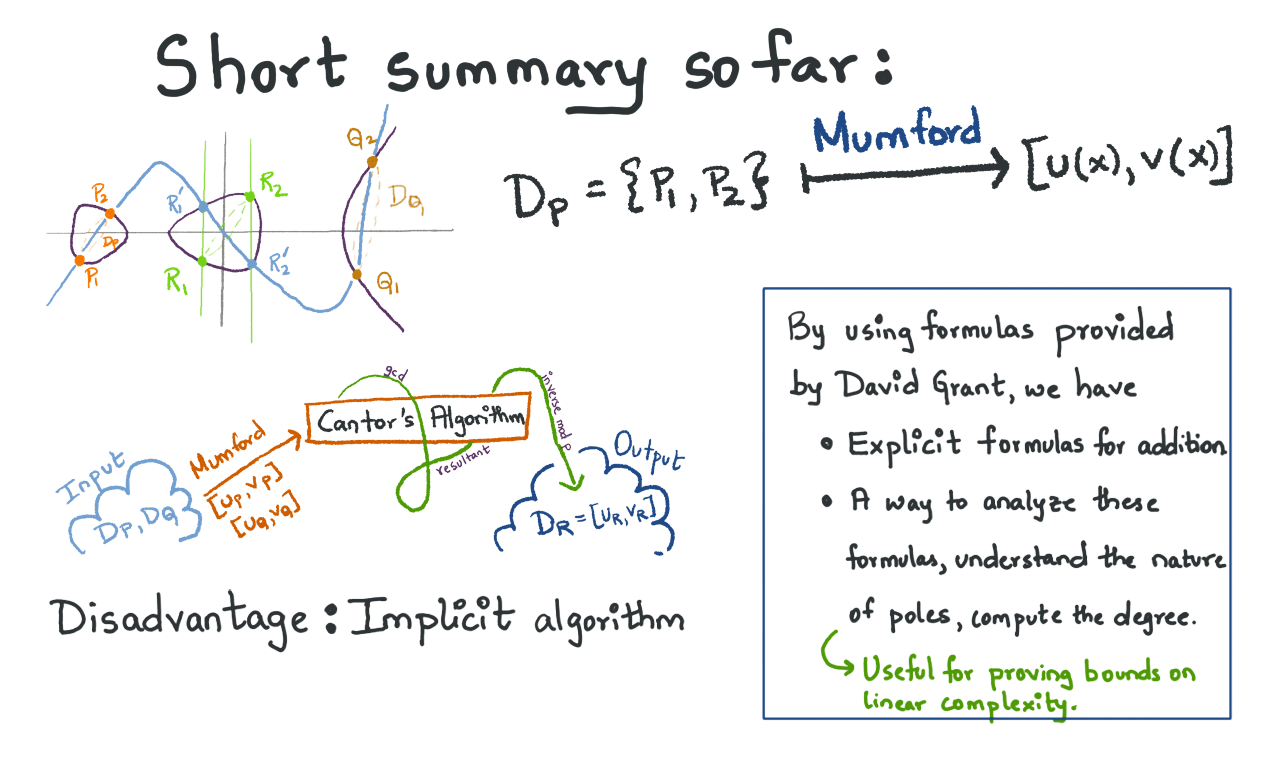 Short summary so far:
Q2
P2
R1'
R2
DQ1
DP
P1
R1
R2'
Q1
DP = {P1, P2}
Mumford
[u(x), v(x)]
gcd
Cantor's Algorithm
inverse mod p
resultant
Input
DP, DQ
Mumford
[uP, vP]
[uQ, vQ]
Output
DR = [uR, vR]
Disadvantage: Implicit algorithm
By using formulas provided
by David Grant, we have
• Explicit formulas for addition
• A way to analyze these
formulas, understand the nature
of poles, compute the degree.
Useful for proving bounds on
linear complexity.